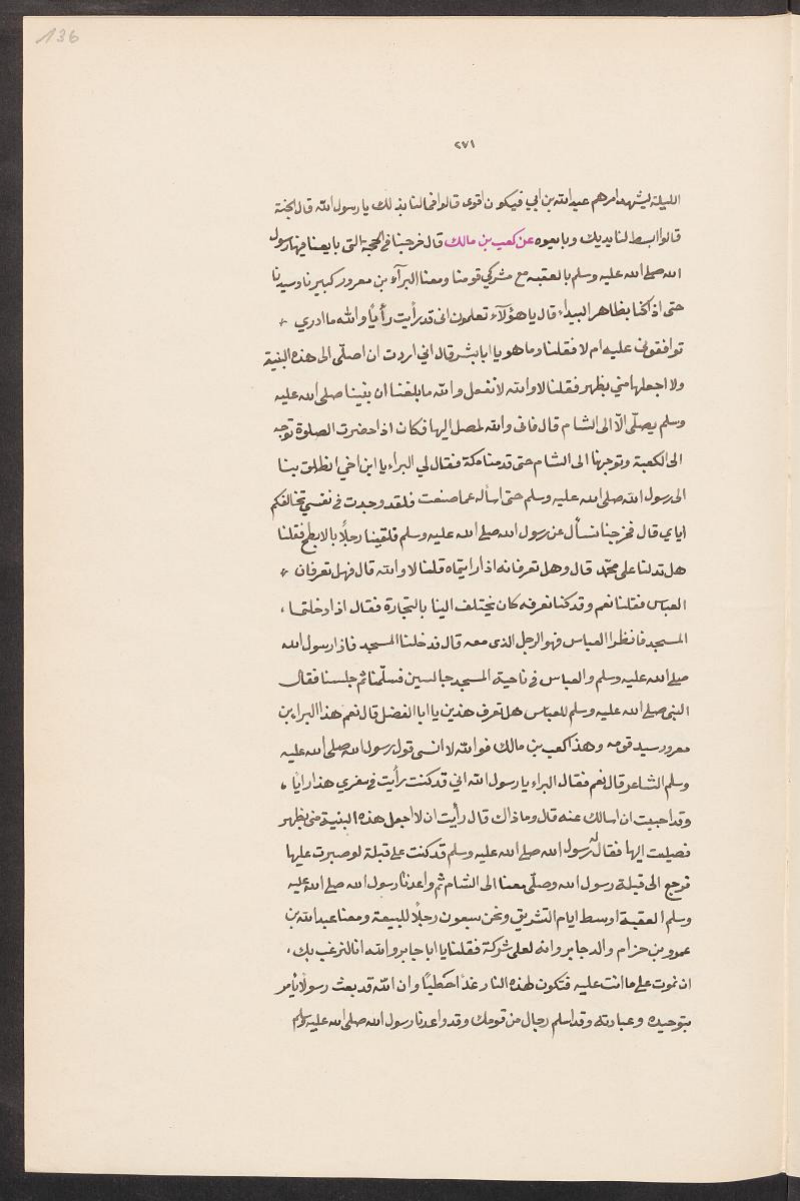 136
٢٧١
الليلة ليشهد امرهم عبد الله بن ابي فيكون اقوى قالوا فما لنا بذلك يا رسول الله قال الجنة
قالوا ابسط لنا يديك وبايعوه عن كعب بن مالك قال خرجنا في الحجة التى بايعنا فيها رسول
الله صلى الله عليه وسلم بالعقبة مع مشركي قومنا ومعنا البرآء بن معرور كبيرنا وسيدنا
حتى اذا كنا بظاهر البيداء قال يا هؤلآء تعلمون انى قد رأيت رأياً والله ما ادري
توافقونى عليه ام لا فقلنا وما هو يا ابا بشر قال اني اردت ان اصلّى الى هذه البنية
ولا اجعلها مني بظهر فقلنا لا والله لا نفعل والله ما بلغنا ان نبينا صلى الله عليه
وسلم يصلّى الّا الى الشام قال فانى والله لمصل اليها فكان اذا حضرت الصلوة توجه
الى الكعبة وتوجهنا الى الشام حتى قدمنا مكة فقال لي البراء يا ابن اخي انطلق بنا
الى رسول الله صلى الله عليه وسلم حتى اسأله عما صنعت فلقد وجدت في نفسي تخالفكم
اياي قال فخرجنا نسأل عن رسول الله صلى الله عليه وسلم فلقينا رجلًا بالابطح فقلنا
هل تدلنا على محمّد قال وهل تعرفانه اذا رايتماه قلنا لا والله قال فهل تعرفان
العباس فقلنا نعم وقد كنا نعرفه كان يختلف الينا بالتجارة فقال اذا دخلتما
المسجد فانظرا العباس فهو الرجل الذى معه قال فدخلنا المسجد فاذا رسول الله
صلى الله عليه وسلم والعباس في ناحية المسجد جالسين فسلّمنا ثم جلسنا فقال
النبى صلى الله عليه وسلم للعباس هل تعرف هذين يا ابا الفضل قال نعم هذا البراء بن
معرور سيد قومه وهذا كعب بن مالك فوالله لا انسى قول رسول الله صلى الله عليه
وسلم الشاعر قال نعم فقال البراء يا رسول الله اني قد كنت رأيت في سفري هذا رايا
وقد احببت ان اسالك عنه قال وما ذاك قال رأيت ان لا اجعل هذه البنية منى بظهر
فصليت اليها فقال له رسول الله صلى الله عليه وسلم قد كنت على قبلة لو صبرت عليها
فرجع الى قبلة رسول الله وصلّى معنا الى الشام ثم واعدنا رسول الله صلى الله عليه
وسلم العقبة اوسط ايام التشريق ونحن سبعون رجلًا للبيعة ومعنا عبد الله بن
عمرو بن حزام والد جابر وانه لعلى شركة فقلنا يا ابا جابر والله انا لنرغب بك
ان تموت على ما انت عليه فتكون لهذه النار غدًا حطبًا وان الله قد بعث رسولا يأمر
بتوحيده وعبادته وقد اسلم رجال من قومك وقد واعدنا رسول الله صلى الله عليه وسلم